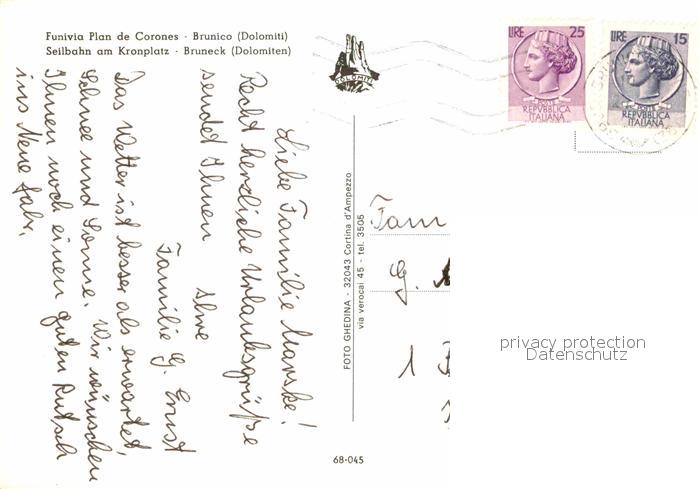 Funivia Plan de Corones - Brunico (Dolomiti)
Seilbahn am Kronplatz - Bruneck (Dolomiten)
DOLOMITI
LIRE 25
POSTE
REPVBBLICA
ITALIANA
LIRE 15
POSTE
REPVBBLICA
ITALIANA
Liebe Familie Marske!
Recht herzliche Urlaubsgrüße
sendet Ihnen Ihre
Familie G. Ernst
Das Wetter ist besser als erwartet,
Schnee und Sonne. Wir wünschen
Ihnen noch einen guten Rutsch
ins Neue Jahr.
FOTO GHEDINA - 32043 Cortina d'Ampezzo
via verocai 45 - tel. 3505
Fam
G.
1
privacy protection
Datenschutz
68-045